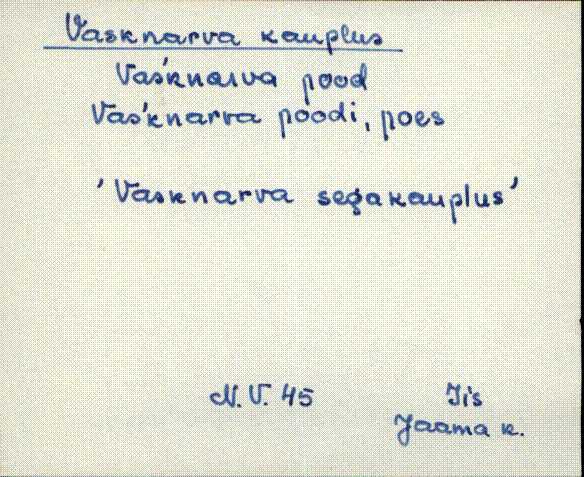 Vasknarva kauplus
Vas'knarva pood
Vas'knarva poodi, poes
'Vasknarva segakauplus'
N.V. 45
Iis
Jaama k.